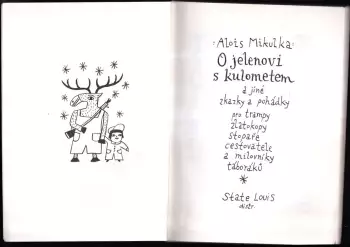 Alois Mikulka:
O jelenovi
s kulometem
a jiné
zkazky a pohádky
pro trampy
zlatokopy
stopaře
cestovatele
a milovníky
táboráků
State Louis